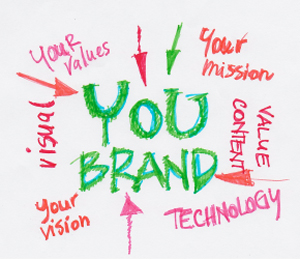 Your
values
Your
mission
visual
YOU
BRAND
VALUE
CONTENT
Your
vision
TECHNOLOGY